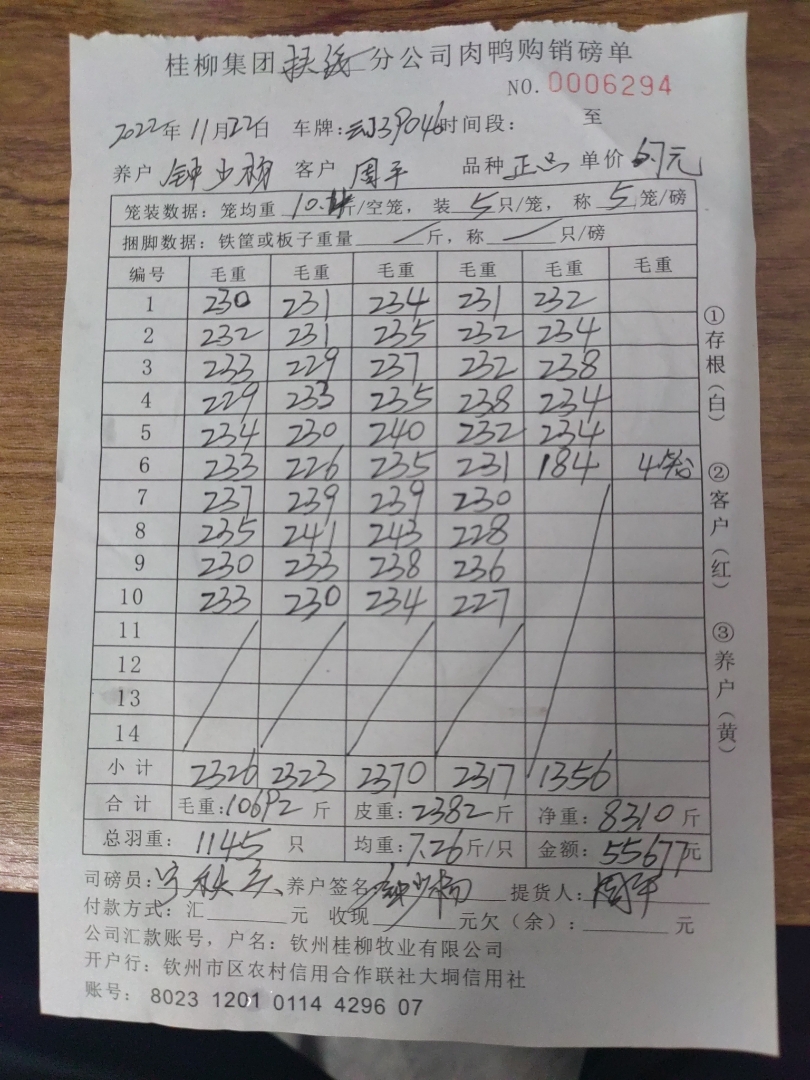 桂柳集团扶绥分公司肉鸭购销磅单
NO.0006294
2022年11月22日 车牌:39046时间段: 至
养户 钟少杨 客户 周平 品种 正品 单价 元
笼装数据:笼均重 斤/空笼,装 5 只/笼,称 5 笼/磅
捆脚数据:铁筐或板子重量 / 斤,称 / 只/磅
编号 毛重 毛重 毛重 毛重 毛重 毛重
1 230 231 234 231 232
2 232 231 235 232 234
3 233 229 237 232 238
4 229 233 235 238 234
5 234 230 240 232 234
6 233 226 235 231 184 4
7 237 239 239 230
8 235 241 243 228
9 230 233 238 236
10 233 230 234 227
11
12
13
14
小计 2326 2323 2370 2317 1356
合计 毛重:10692斤 皮重:2382斤 净重:8310斤
总羽重: 1145 只 均重:7.26斤/只 金额:55677元
司磅员: 养户签名:钟少杨 提货人:周平
付款方式:汇 元 收现 元欠(余): 元
公司汇款账号,户名:钦州桂柳牧业有限公司
开户行:钦州市区农村信用合作联社大垌信用社
账号: 8023 1201 0114 4296 07
①存根(白)
②客户(红)
③养户(黄)